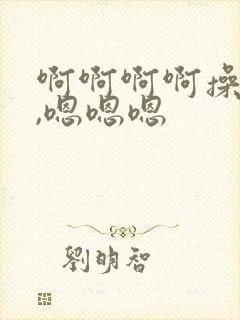 啊啊啊啊操
,嗯嗯嗯
劉明智